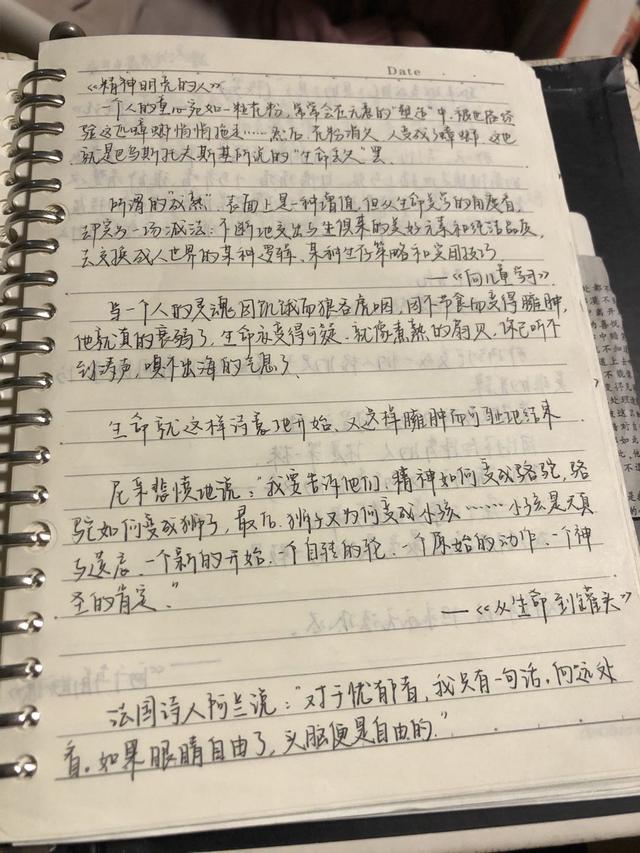 Date
《精神明亮的人》
一个人的童心宛如一粒花粉,常常会在无意的"塑造"中,被世俗经
验这匹蟑螂悄悄拖走……然后,花粉消失,人变成了蟑螂,这也
就是巴乌斯托夫斯基所说的"生命丢失"罢
所谓的"成熟",表面上是一种增值,但从生命美学的角度看,
却实为一场减法:不断地交出与生俱来的美好元素和纯洁品质,
去交换成人世界的某种逻辑、某种生存策略和实用技巧
——《向儿童学习》
当一个人的灵魂因饥饿而狼吞虎咽,因不节食而变得臃肿,
他就真的衰弱了,生命亦变得可疑,就像煮熟的扇贝,你已听不
到涛声,嗅不出海的气息了
生命就这样诗意地开始,又这样臃肿而可耻地结束
尼采悲愤地说:"我要告诉他们,精神如何变成骆驼,骆
驼如何变成狮子,最后,狮子又为何变成小孩……小孩是天真
与遗忘,一个新的开始,一个自转的轮,一个原始的动作,一个神
圣的肯定。"
——《从生命到罐头》
法国诗人阿兰说:"对于忧郁者,我只有一句话,向远处
看。如果眼睛自由了,头脑便是自由的."